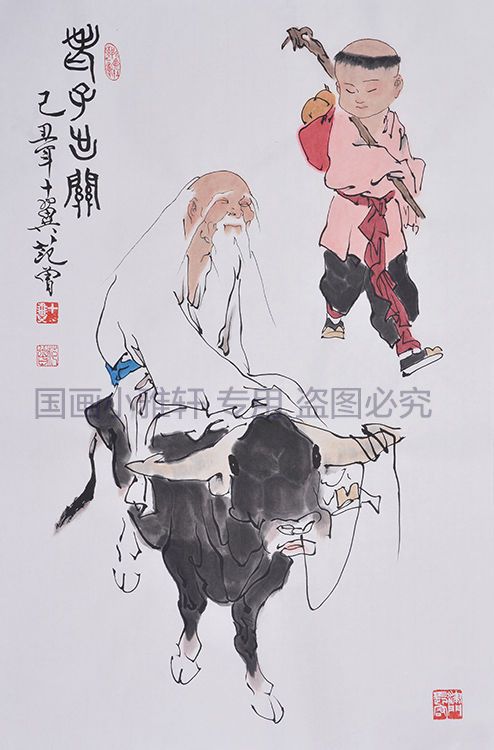 老子出關
己丑年十翼范曾
国画小雅轩 专用 盗图必究